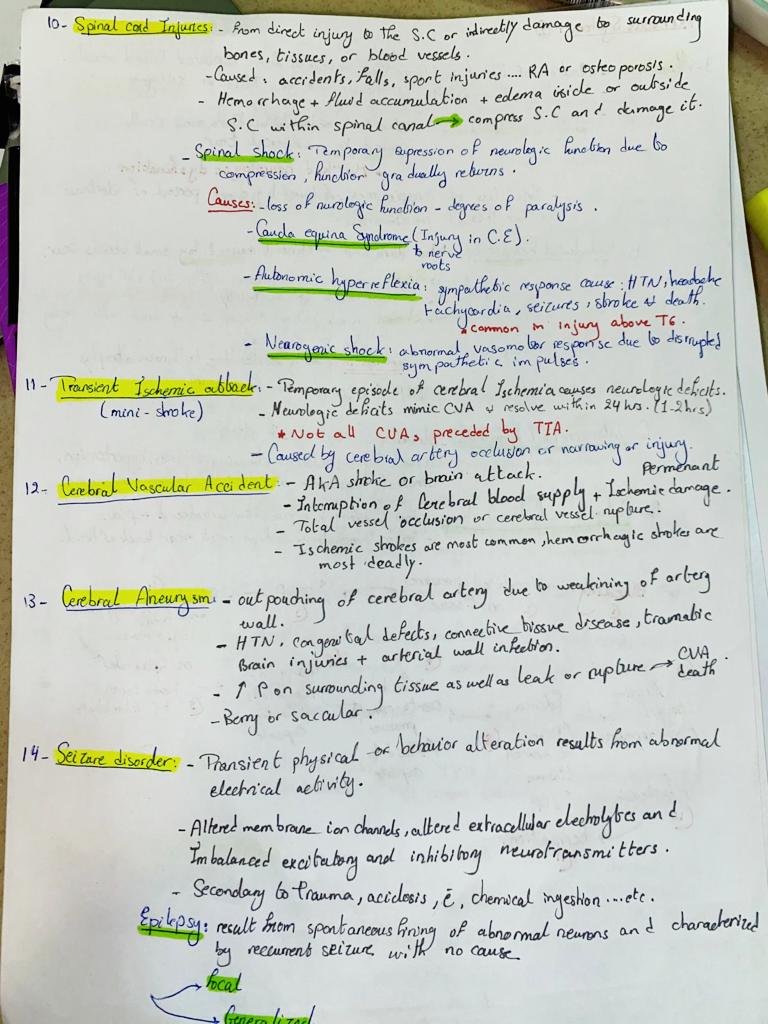 10- Spinal cord Injuries: - from direct injury to the S.C or indirectly damage to surrounding
bones, tissues, or blood vessels.
- Caused: accidents, falls, sport injuries .... RA or osteoporosis.
- Hemorrhage + fluid accumulation + edema inside or outside
S.C within spinal canal → compress S.C and damage it.
- Spinal shock: Temporary supression of neurologic function due to
compression, function gradually returns.
Causes: - loss of nurologic function - degrees of paralysis.
- Cauda equina Syndrome (Injury in C.E).
to nerve
roots
- Autonomic hyperreflexia: sympathetic response cause: HTN, headache
tachycardia, seizures, stroke & death.
*common in injury above T6.
- Neurogenic shock: abnormal vasomotor response due to disrupted
sympathetic impulses.
11- Transient Ischemic attack: - Temporary episode of cerebral Ischemia causes neurologic deficits.
(mini-stroke) - Neurologic deficits mimic CVA & resolve within 24 hrs. (1-2hrs)
* Not all CVAs preceded by TIA.
- Caused by cerebral artery occlusion or narrowing or injury.
12- Cerebral Vascular Accident: - AKA stroke or brain attack. Permenant
- Interruption of Cerebral blood supply + Ischemic damage.
- Total vessel occlusion or cerebral vessel rupture.
- Ischemic strokes are most common, hemorrhagic strokes are
most deadly.
13- Cerebral Aneurysm: - outpouching of cerebral artery due to weakining of artery
wall.
- HTN, congenital defects, connective tissue disease, traumatic
Brain injuries + arterial wall infection.
- ↑ P on surrounding tissue as well as leak or rupture → CVA
death
- Berry or saccular.
14- Seizure disorder: - Transient physical or behavior alteration results from abnormal
electrical activity.
- Altered membrane ion channels, altered extracellular electrolytes and
Imbalanced excitatory and inhibitory neurotransmitters.
- Secondary to trauma, acidosis, ē, chemical ingestion ... etc.
Epilepsy: result from spontaneous firing of abnormal neurons and characterized
by reccurent seizure with no cause
focal
Generalized